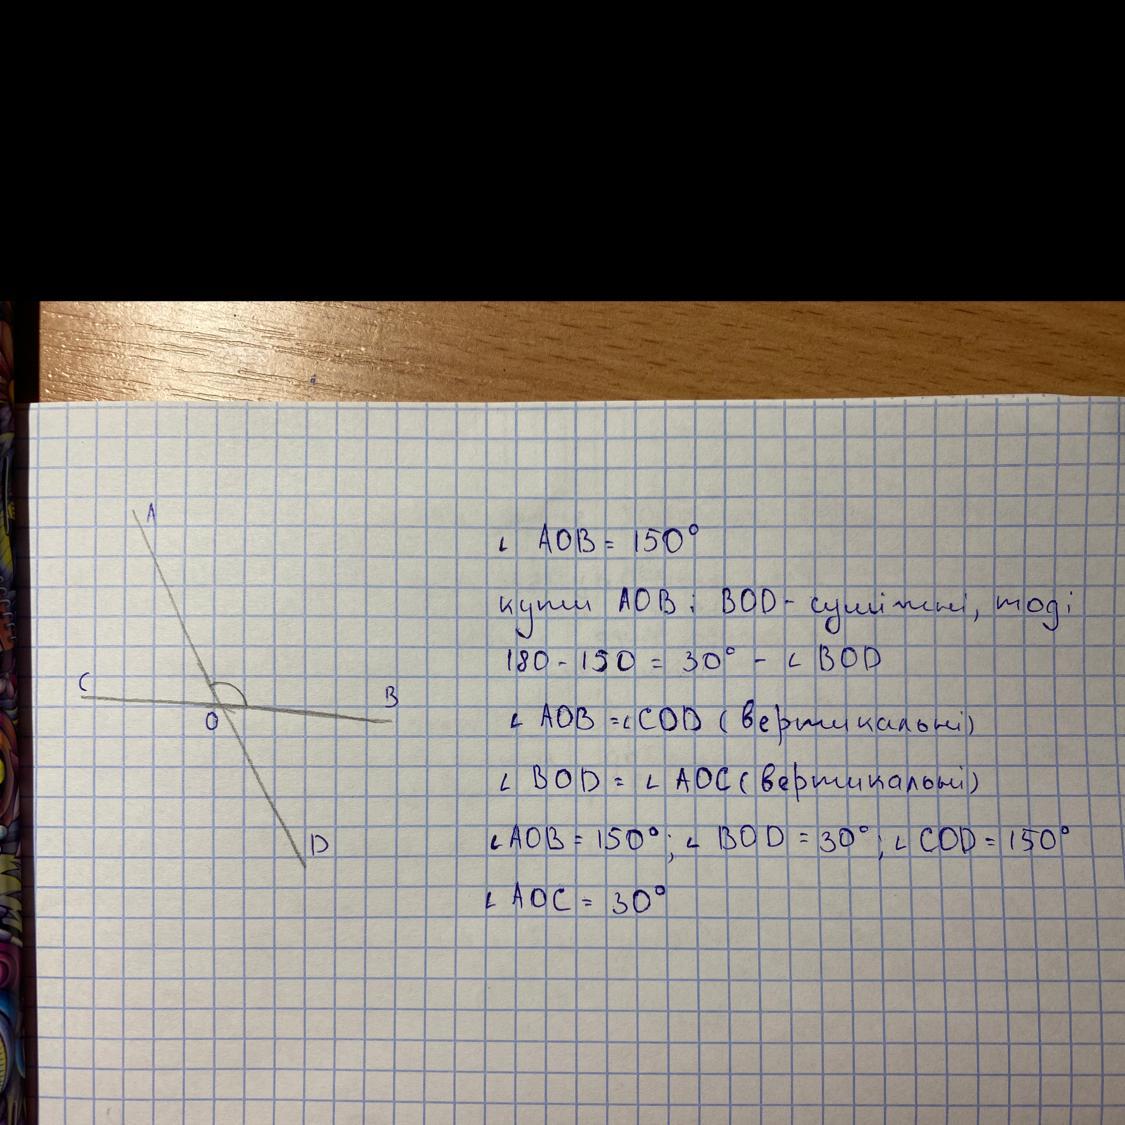 A
C
O
B
D
∠ AOB = 150°
кути AOB і BOD - суміжні, тоді
180 - 150 = 30° - ∠ BOD
∠ AOB = ∠COD (вертикальні)
∠ BOD = ∠ AOC (вертикальні)
∠ AOB = 150°; ∠ BOD = 30°; ∠ COD = 150°
∠ AOC = 30°